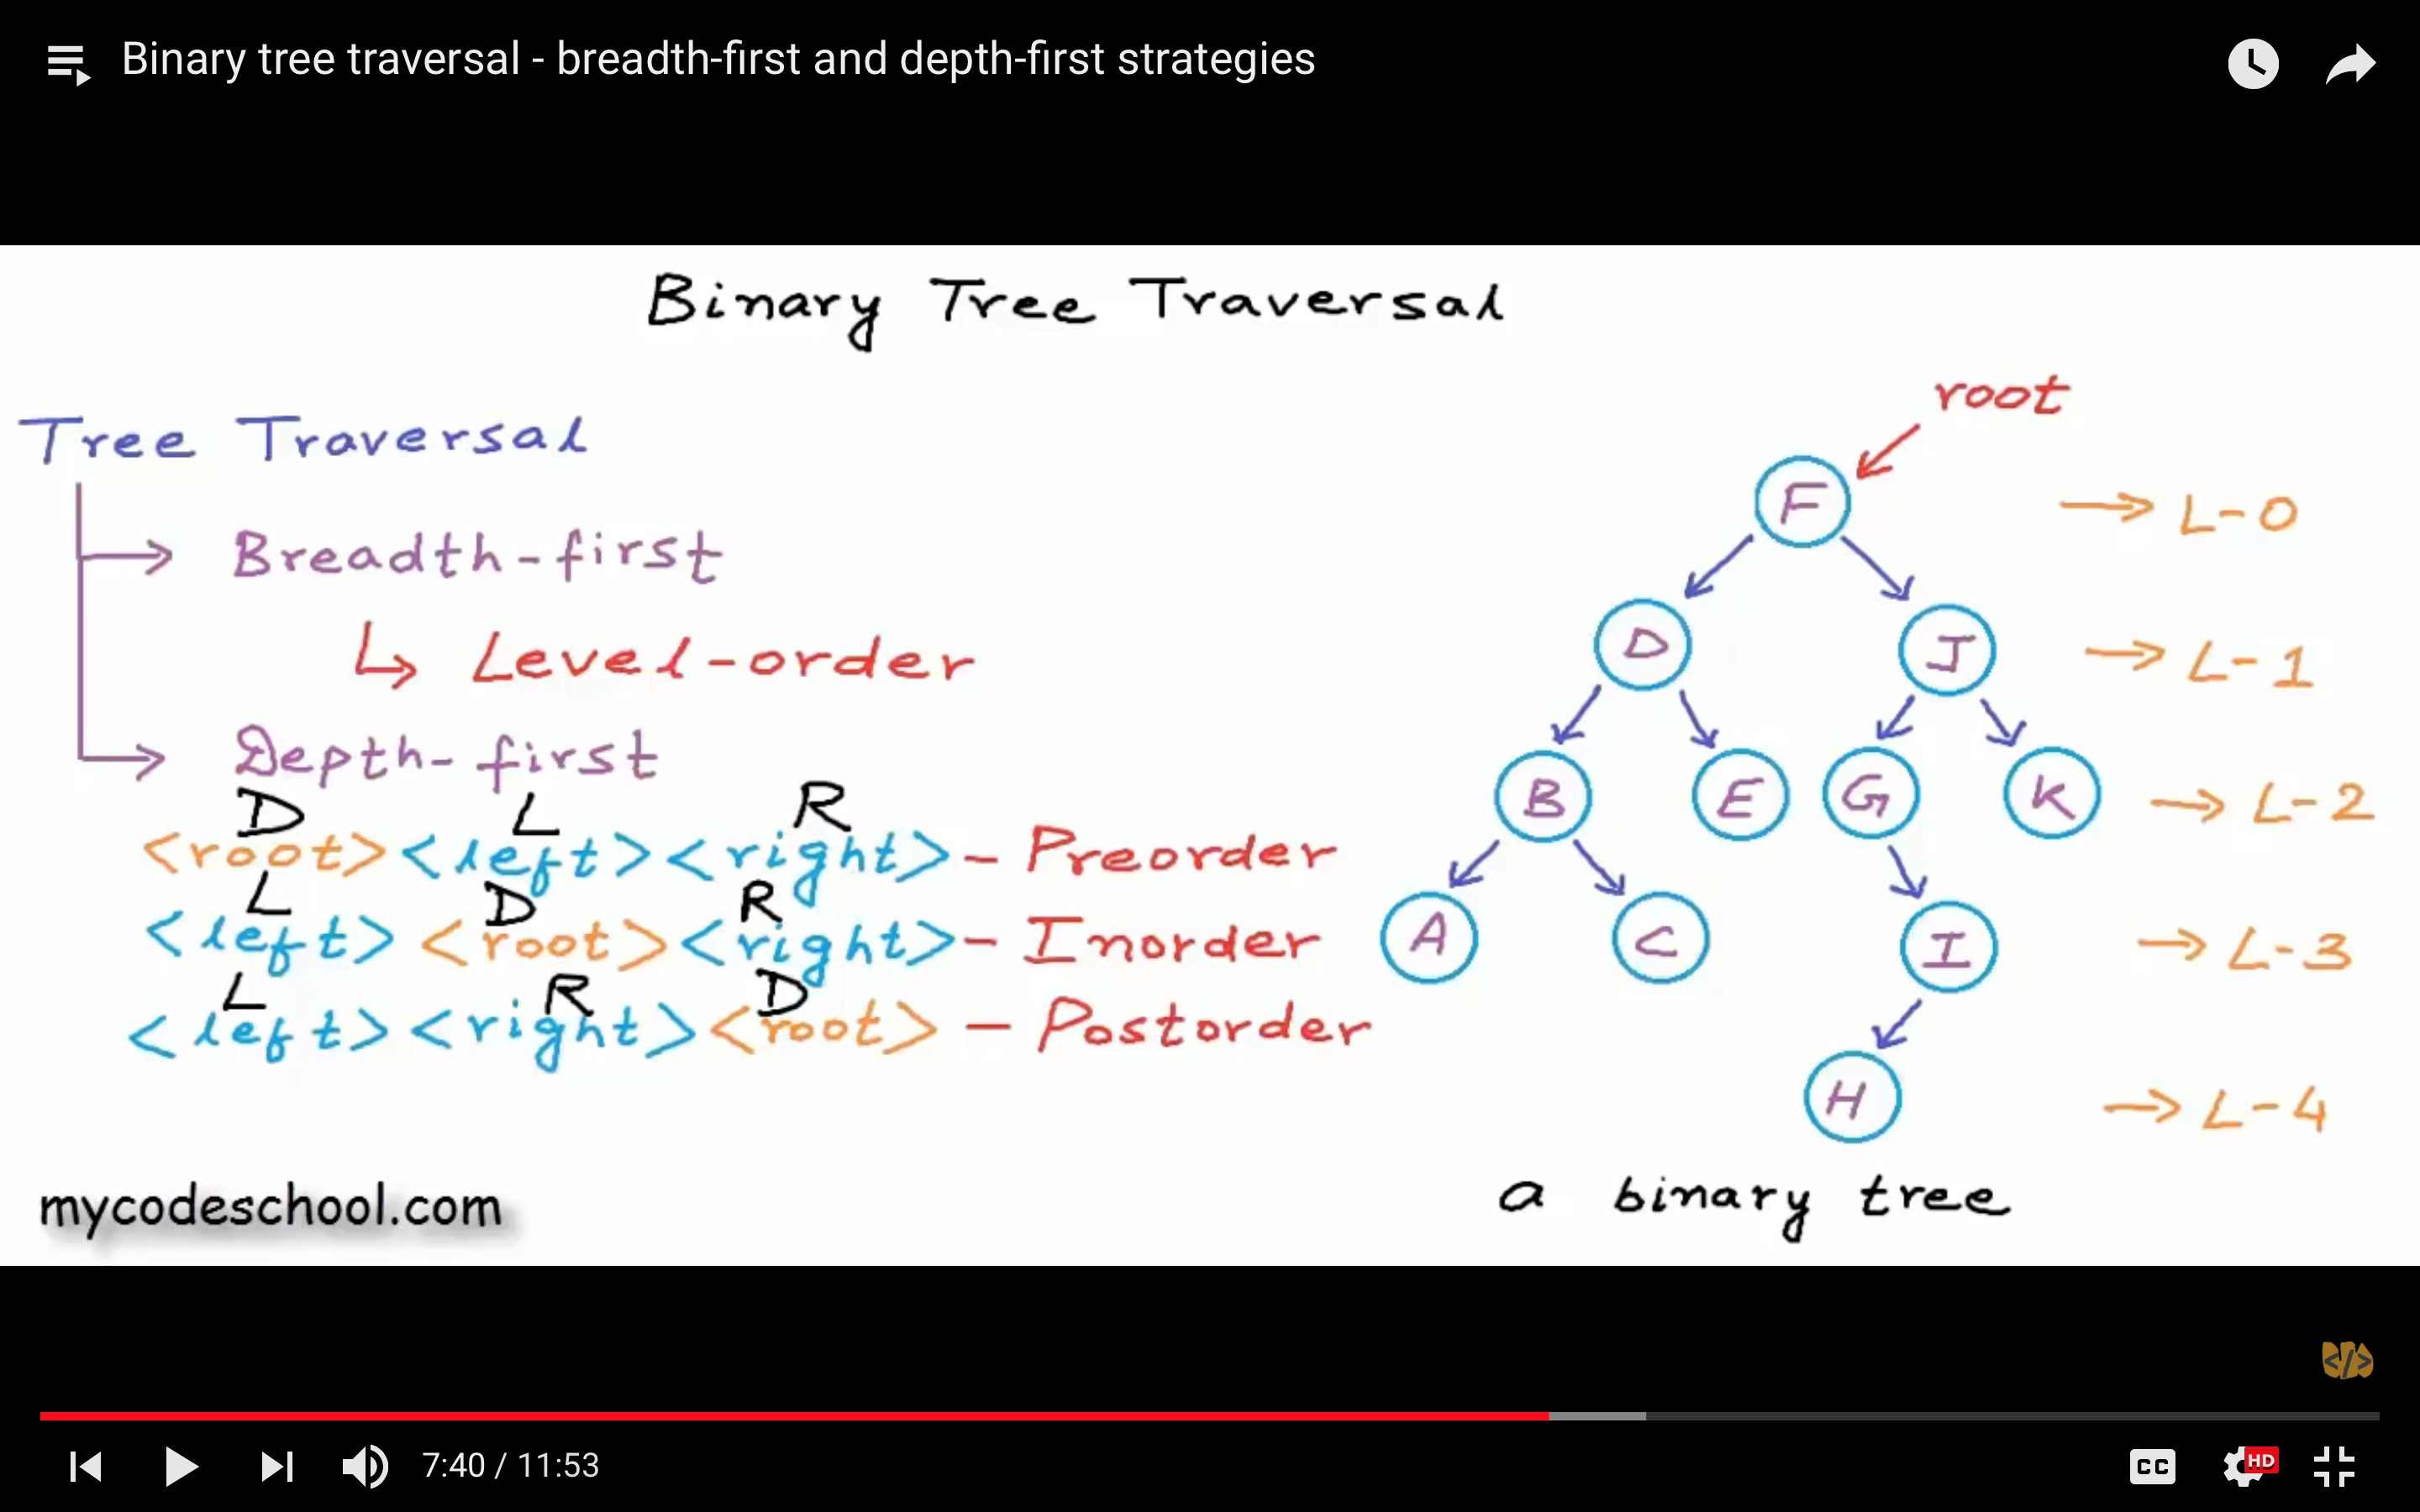 Binary tree traversal - breadth-first and depth-first strategies
Binary Tree Traversal
Tree Traversal
Breadth-first
Level-order
Depth-first
D L R
<root><left><right>- Preorder
L D R
<left><root><right>- Inorder
L R D
<left><right><root> - Postorder
root
F
L-0
D J
L-1
B E G K
L-2
A C I
L-3
H
L-4
a binary tree
mycodeschool.com
</>
7:40 / 11:53
CC
HD